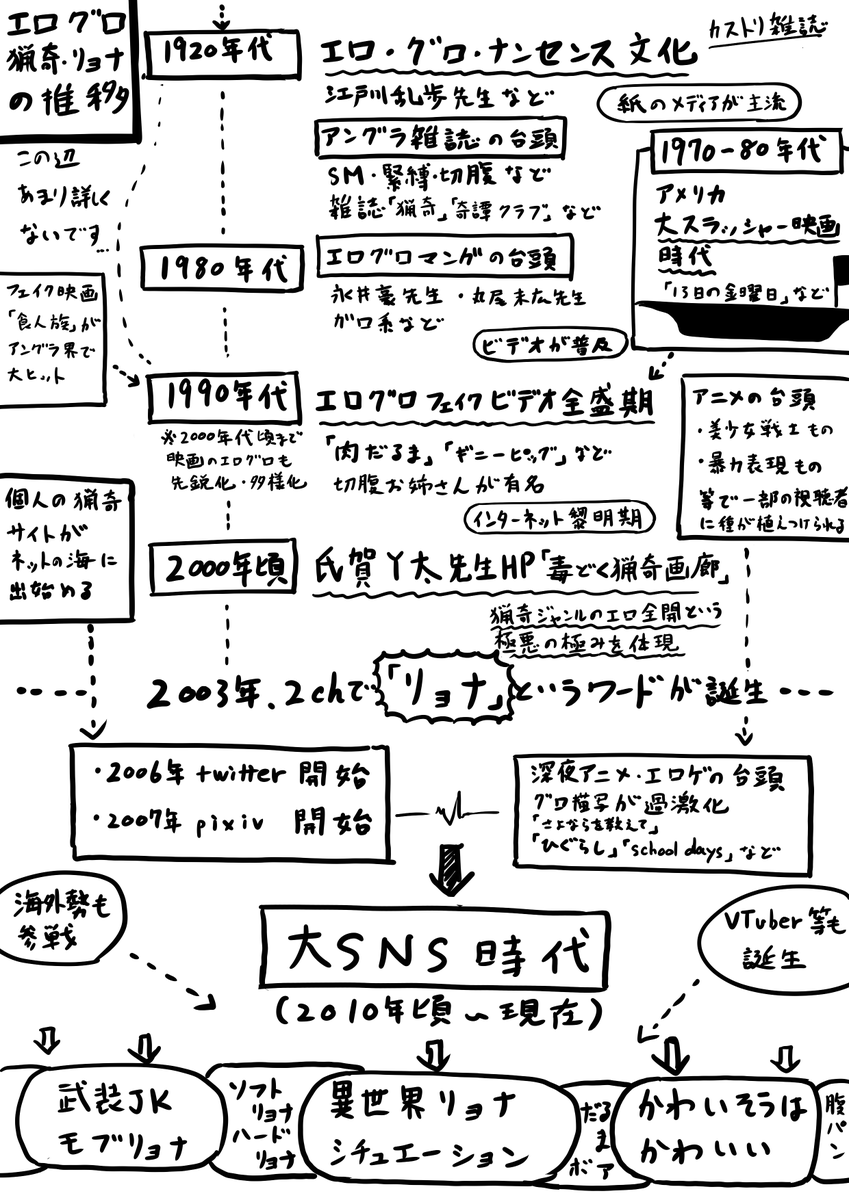 エログロ
猟奇・リョナ
の推移
この辺
あまり詳しく
ないです…
1920年代
エロ・グロ・ナンセンス文化
カストリ雑誌
江戸川乱歩先生など
紙のメディアが主流
アングラ雑誌の台頭
SM・緊縛・切腹など
雑誌「猟奇」「奇譚クラブ」など
1970-80年代
アメリカ
大スラッシャー映画
時代
「13日の金曜日」など
1980年代
エログロマンガの台頭
永井豪先生・丸尾末広先生
ガロ系など
ビデオが普及
フェイク映画
「食人族」が
アングラ界で
大ヒット
1990年代
エログロフェイクビデオ全盛期
※2000年代頃まで
映画のエログロも
先鋭化・多様化
「肉だるま」「ギニーピッグ」など
切腹お姉さんが有名
インターネット黎明期
アニメの台頭
・美少女戦士もの
・暴力表現もの
等で一部の視聴者
に種が植えつけられる
個人の猟奇
サイトが
ネットの海に
出始める
2000年頃
氏賀Y太先生HP「毒どく猟奇画廊」
猟奇ジャンルのエロ全開という
極悪の極みを体現
2003年、2chで「リョナ」というワードが誕生
・2006年 twitter 開始
・2007年 pixiv 開始
深夜アニメ・エロゲの台頭
グロ描写が過激化
「さよならを教えて」
「ひぐらし」「school days」など
海外勢も
参戦
大SNS時代
(2010年頃〜現在)
VTuber等も
誕生
武装JK
モブリョナ
ソフト
リョナ
ハード
リョナ
異世界リョナ
シチュエーション
だるま
ボア
かわいそうは
かわいい
腹パン